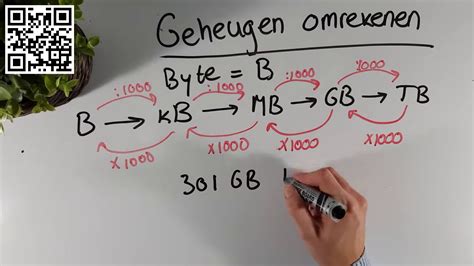 Geheugen omrekenen
Byte = B
:1000 :1000 :1000 :1000
B → kB → MB → GB → TB
x1000 x1000 x1000 x1000
301 GB